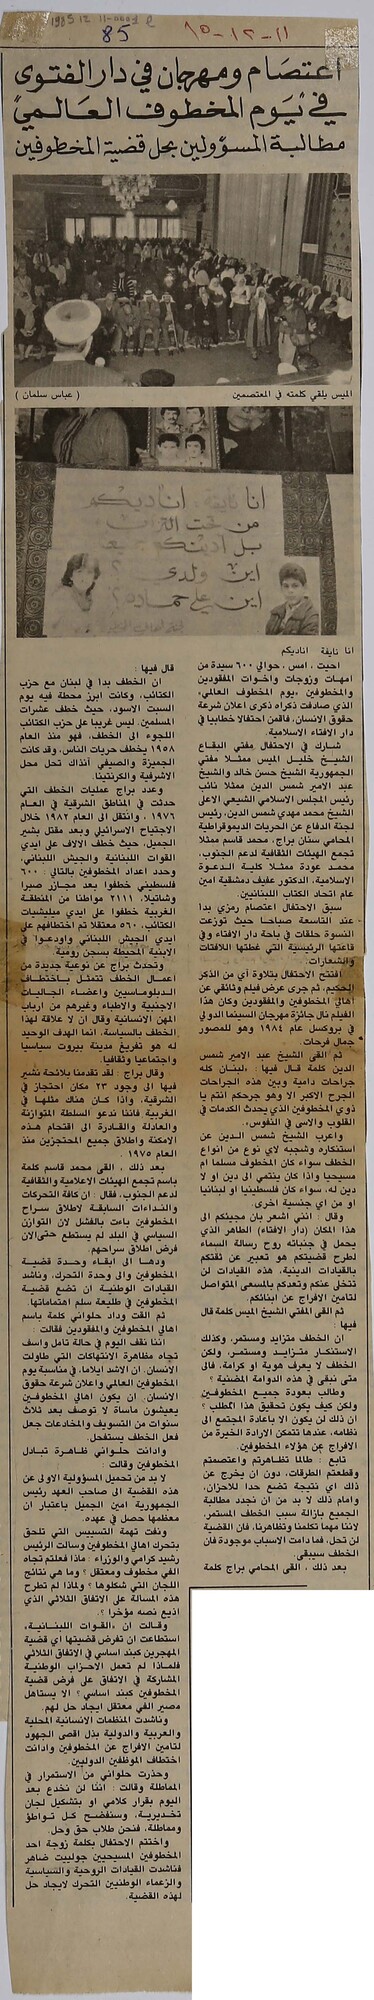 1985 12 11
85
١١-١٢-٨٥
اعتصام ومهرجان في دار الفتوى
في "يوم المخطوف العالمي"
مطالبة المسؤولين بحل قضية المخطوفين
الميس يلقي كلمته في المعتصمين
( عباس سلمان )
انا نايفة اناديكم
من تحت التراب
اين ولدي ؟
اين علي حماده ؟
انا نايفة اناديكم
احيت ، امس ، حوالي ٦٠٠ سيدة من
امهات وزوجات واخوات المفقودين
والمخطوفين «يوم المخطوف العالمي»
الذي صادفت ذكراه ذكرى اعلان شرعة
حقوق الانسان، فاقمن احتفالا خطابيا في
دار الافتاء الاسلامية.
شارك في الاحتفال مفتي البقاع
الشيخ خليل الميس ممثلا مفتي
الجمهورية الشيخ حسن خالد والشيخ
عبد الامير شمس الدين ممثلا نائب
رئيس المجلس الاسلامي الشيعي الاعلى
الشيخ محمد مهدي شمس الدين، رئيس
لجنة الدفاع عن الحريات الديموقراطية
المحامي سنان براج، محمد قاسم ممثلا
تجمع الهيئات الثقافية لدعم الجنوب،
محمد عودة ممثلا كلية الدعوة
الاسلامية، الدكتور عفيف دمشقية امين
عام اتحاد الكتاب اللبنانيين.
سبق الاحتفال اعتصام رمزي بدا
عند التاسعة صباحا حيث توزعت
النسوة حلقات في باحة دار الافتاء وفي
قاعتها الرئيسية التي غطتها اللافتات
والشعارات.
افتتح الاحتفال بتلاوة أي من الذكر
الحكيم، ثم جرى عرض فيلم وثائقي عن
اهالي المخطوفين والمفقودين وكان هذا
الفيلم نال جائزة مهرجان السينما الدولي
في بروكسل عام ١٩٨٤ وهو للمصور
جمال فرحات.
ثم القى الشيخ عبد الامير شمس
الدين كلمة قال فيها : «لبنان كله
جراحات دامية وبين هذه الجراحات
الجرح الاكبر الا وهو جرحكم انتم يا
ذوي المخطوفين الذي يحدث الكدمات في
القلوب والاسى في النفوس».
واعرب الشيخ شمس الدين عن
استنكاره وشجبه لاي نوع من انواع
الخطف سواء كان المخطوف مسلما ام
مسيحيا واذا كان ينتمي الى دين او لا
دين له، سواء كان فلسطينيا او لبنانيا
او من اي جنسية اخرى.
وقال : انني اشعر بان مجيئكم الى
هذا المكان (دار الافتاء) الطاهر الذي
يحمل في جنباته روح رسالة السماء
لطرح قضيتكم هو تعبير عن ثقتكم
بالقيادات الدينية، هذه القيادات لن
تتخلى عنكم وتعدكم بالمسعى المتواصل
لتامين الافراج عن ابنائكم
ثم القى المفتي الشيخ الميس كلمة قال
فيها :
ان الخطف متزايد ومستمر، وكذلك
الاستنكار متزايد ومستمر، ولكن
الخطف لا يعرف هوية او كرامة، فالى
متى نبقى في هذه الدوامة المضنية ؟
وطالب بعودة جميع المخطوفين
ولكن كيف يكون تحقيق هذا المطلب ؟
ان ذلك لن يكون الا باعادة المجتمع الى
نظامه، عندها تتمكن الارادة الخيرة من
الافراج عن هؤلاء المخطوفين.
تابع : طالما تظاهرتم واعتصمتم
وقطعتم الطرقات، دون ان يخرج عن
ذلك اي نتيجة تضع حدا للاحزان،
وامام ذلك لا بد من ان نجدد مطالبة
الجميع بازالة سبب الخطف المستمر،
لاننا مهما تكلمنا وتظاهرنا، فان القضية
لن تحل، فما دامت الاسباب موجودة فان
الخطف سيبقى.
بعد ذلك ، القى المحامي براج كلمة
قال فيها :
ان الخطف بدا في لبنان مع حزب
الكتائب، وكانت ابرز محطة فيه يوم
السبت الاسود، حيث خطف عشرات
المسلمين. ليس غريبا على حزب الكتائب
اللجوء الى الخطف، فهو منذ العام
١٩٥٨ يخطف حريات الناس، وقد كانت
الجميزة والصيفي أنذاك تحل محل
الاشرفية والكرنتينا.
وعدد براج عمليات الخطف التي
حدثت في المناطق الشرقية في العام
١٩٧٦ ، وانتقل الى العام ١٩٨٢ خلال
الاجتياح الاسرائيلي وبعد مقتل بشير
الجميل، حيث خطف الالاف على ايدي
القوات اللبنانية والجيش اللبناني،
وحدد اعداد المخطوفين بالتالي : ٦٠٠
فلسطيني خطفوا بعد مجازر صبرا
وشاتيلا، ٢١١١ مواطنا من المنطقة
الغربية خطفوا على ايدي ميليشيات
الكتائب، ٥٦٠ معتقلا تم اختطافهم على
ايدي الجيش اللبناني واودعوا في
الابنية المحيطة بسجن رومية
وتحدث براج عن نوعية جديدة من
اعمال الخطف تتمثل باختطاف
الدبلوماسيين واعضاء الجاليات
الاجنبية والاطباء وغيرهم من ارباب
المهن الانسانية وقال ان لا علاقة لهذا
الخطف بالسياسة، انما الهدف الوحيد
له هو تفريغ مدينة بيروت سياسيا
واجتماعيا وثقافيا.
وقال براج : لقد تقدمنا بلائحة نشير
فيها الى وجود ٢٣ مكان احتجاز في
الشرقية، واذا كان هناك مثلها في
الغربية فاننا ندعو السلطة المتوازنة
والعادلة والقادرة الى اقتحام هذه
الامكنة واطلاق جميع المحتجزين منذ
العام ١٩٧٥ .
بعد ذلك ، القى محمد قاسم كلمة
باسم تجمع الهيئات الاعلامية والثقافية
لدعم الجنوب، فقال : ان كافة التحركات
والنداءات السابقة لاطلاق سراح
المخطوفين باءت بالفشل لان التوازن
السياسي في البلد لم يستطع حتى الان
فرض اطلاق سراحهم.
ودعا الى ابقاء وحدة قضية
المخطوفين والى وحدة التحرك، وناشد
القيادات الوطنية ان تضع قضية
المخطوفين في طليعة سلم اهتماماتها.
ثم القت وداد حلواني كلمة باسم
اهالي المخطوفين والمفقودين فقالت :
اننا نقف اليوم في حالة تامل واسف
تجاه مظاهرة الانتهاكات التي طاولت
الانسان. ان الاشد ايلاما، في مناسبة يوم
المخطوفين العالمي واعلان شرعة حقوق
الانسان. ان يكون اهالي المخطوفين
يعيشون ماساة لا توصف بعد ثلاث
سنوات من التسويف والمخادعات جعل
فعل الخطف يستفحل.
وادانت حلواني ظاهرة تبادل
المخطوفين وقالت :
لا بد من تحميل المسؤولية الاولى عن
هذه القضية الى صاحب العهد رئيس
الجمهورية امين الجميل باعتبار ان
معظمها حصل في عهده.
ونفت تهمة التسييس التي تلحق
بتحرك اهالي المخطوفين وسالت الرئيس
رشيد كرامي والوزراء : ماذا فعلتم تجاه
الفي مخطوف ومعتقل ؟ وما هي نتائج
اللجان التي شكلوها ؟ ولماذا لم تطرح
هذه المسالة على الاتفاق الثلاثي الذي
اذيع نصه مؤخرا ؟
وقالت ان «القوات اللبنانية»،
استطاعت ان تفرض قضيتها اي قضية
المهجرين كبند اساسي في الاتفاق الثلاثي
فلماذا لم تعمل الاحزاب الوطنية
المشاركة في الاتفاق على فرض قضية
المخطوفين كبند اساسي؟ الا يستاهل
مصير الفي معتقل ايجاد حل لهم.
وناشدت المنظمات الانسانية المحلية
والعربية والدولية بذل اقصى الجهود
لتامين الافراج عن المخطوفين وادانت
اختطاف الموظفين الدوليين.
وحذرت حلواني من الاستمرار في
المماطلة وقالت : اننا لن نخدع بعد
اليوم بقرار كلامي او بتشكيل لجان
تخديرية، وسنفضح كل تواطؤ
ومماطلة، فنحن طلاب حق وحل.
واختتم الاحتفال بكلمة زوجة احد
المخطوفين المسيحيين جولييت ضاهر
فناشدت القيادات الروحية والسياسية
والزعماء الوطنيين التحرك لايجاد حل
لهذه القضية.